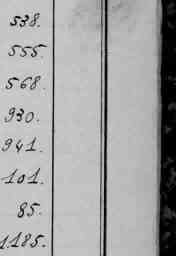 538.
555.
568.
930.
941.
101.
85.
1185.